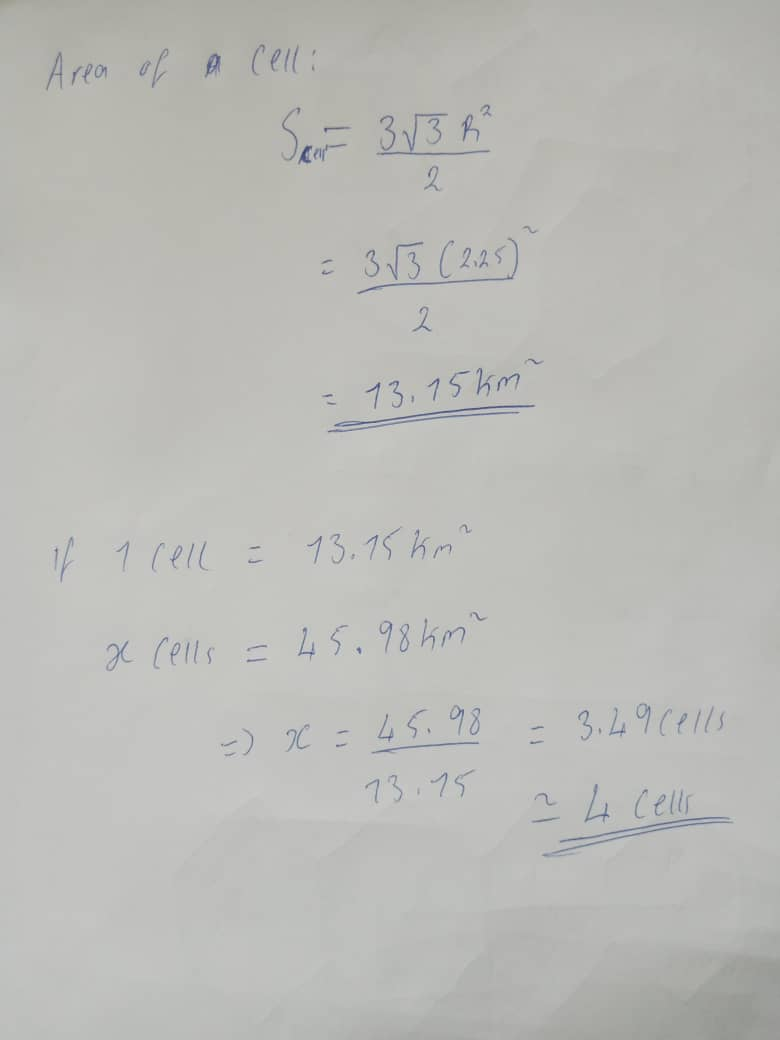 Area of a Cell:
Scell = 3√3 R²
2
= 3√3 (2.25)²
2
= 13.15 km²
If 1 Cell = 13.15 km²
x Cells = 45.98 km²
=> x = 45.98 = 3.49 Cells
13.15 ≃ 4 Cells